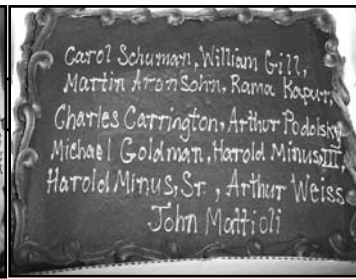 Carol Schuman, William Gill,
Martin Aronsohn, Rama Kapur,
Charles Carrington, Arthur Podolsky
Michael Goldman, Harold Minus, III,
Harold Minus, Sr., Arthur Weiss
John Mattioli